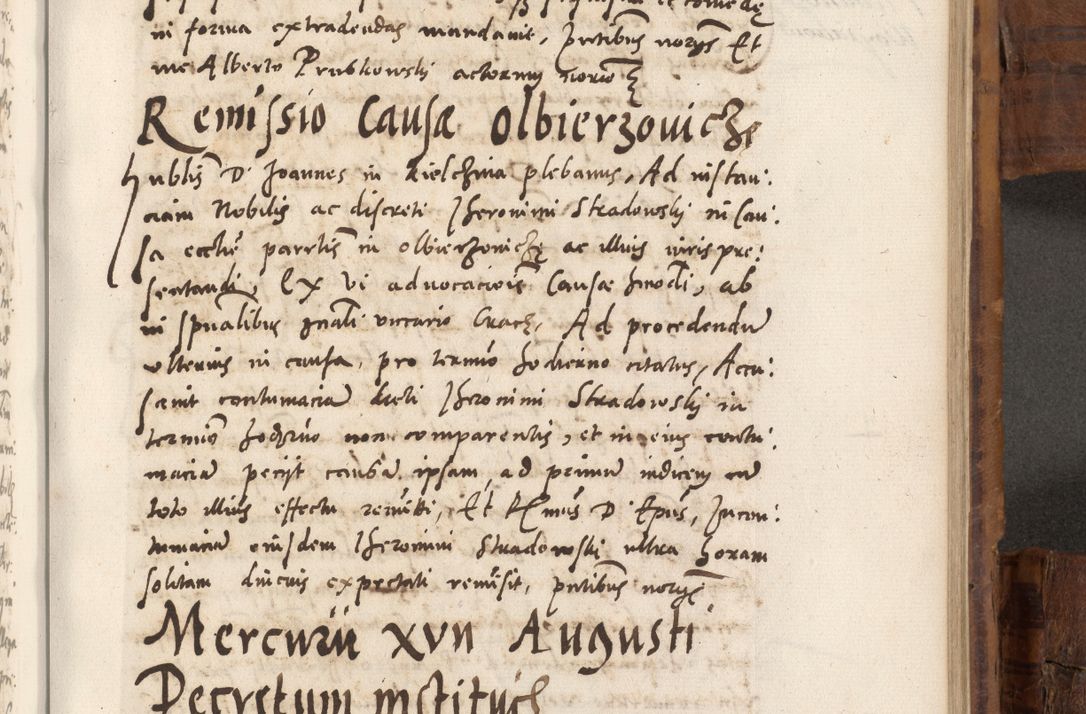 in forma extradendas mandavit, Pntibus norys Et
me Alberto Prubkowskj actorum norio
Remissio Causæ Olbierzovicze
hnblis D Joannes in Kielchina plebanus, Ad instan:
ciam Nobilis ac discreti Jheronimi Stradowskj in Cau:
sa ecclie parrlis in olbierzovicze ac illius iuris pre:
sentandi, Ex vi advocacionis Causæ hmodi, ab
in spualibus gnali vicario Crac, Ad procedendu
ulterius in causa, pro termino hodierno citatus, Accu:
savit contumacia dicti Jheronimi Stradowskj in
termino hodierno non comparentis, et in eius contu:
macia pecijt causa ipsam, ad primu iudicem cu
toto illius effectu remitti, Et Rmus D Epus, In con:
tumacia eiusdem Jheronimi Stradowskj ultra horam
solitam diucius expectati remisit, pntibus norys
Mercurii xvii Augusti
Decretum